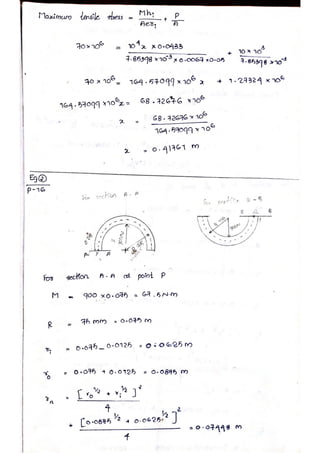 Maximum tensile stress = Mh₁ / Aer₁ + P / A
70 × 10⁶ = 10⁴ x × 0.0433 / 7.85398 × 10⁻³ × 0.0067 × 0.05 + 10 × 10³ / 7.85398 × 10⁻³
70 × 10⁶ = 164.57099 × 10⁶ x + 1.27324 × 10⁶
164.57099 × 10⁶ x = 68.72676 × 10⁶
x = 68.72676 × 10⁶ / 164.57099 × 10⁶
x = 0.41761 m
Eg②
P-16
section A-A
For section A-A at point P
M = 900 × 0.075 = 67.5 N-m
R = 75 mm = 0.075 m
rᵢ = 0.075 - 0.0125 = 0.0625 m
r₀ = 0.075 + 0.0125 = 0.0875 m
rₙ = [r₀^½ + rᵢ^½]² / 4
= [0.0875^½ + 0.0625^½]² / 4 = 0.07448 m